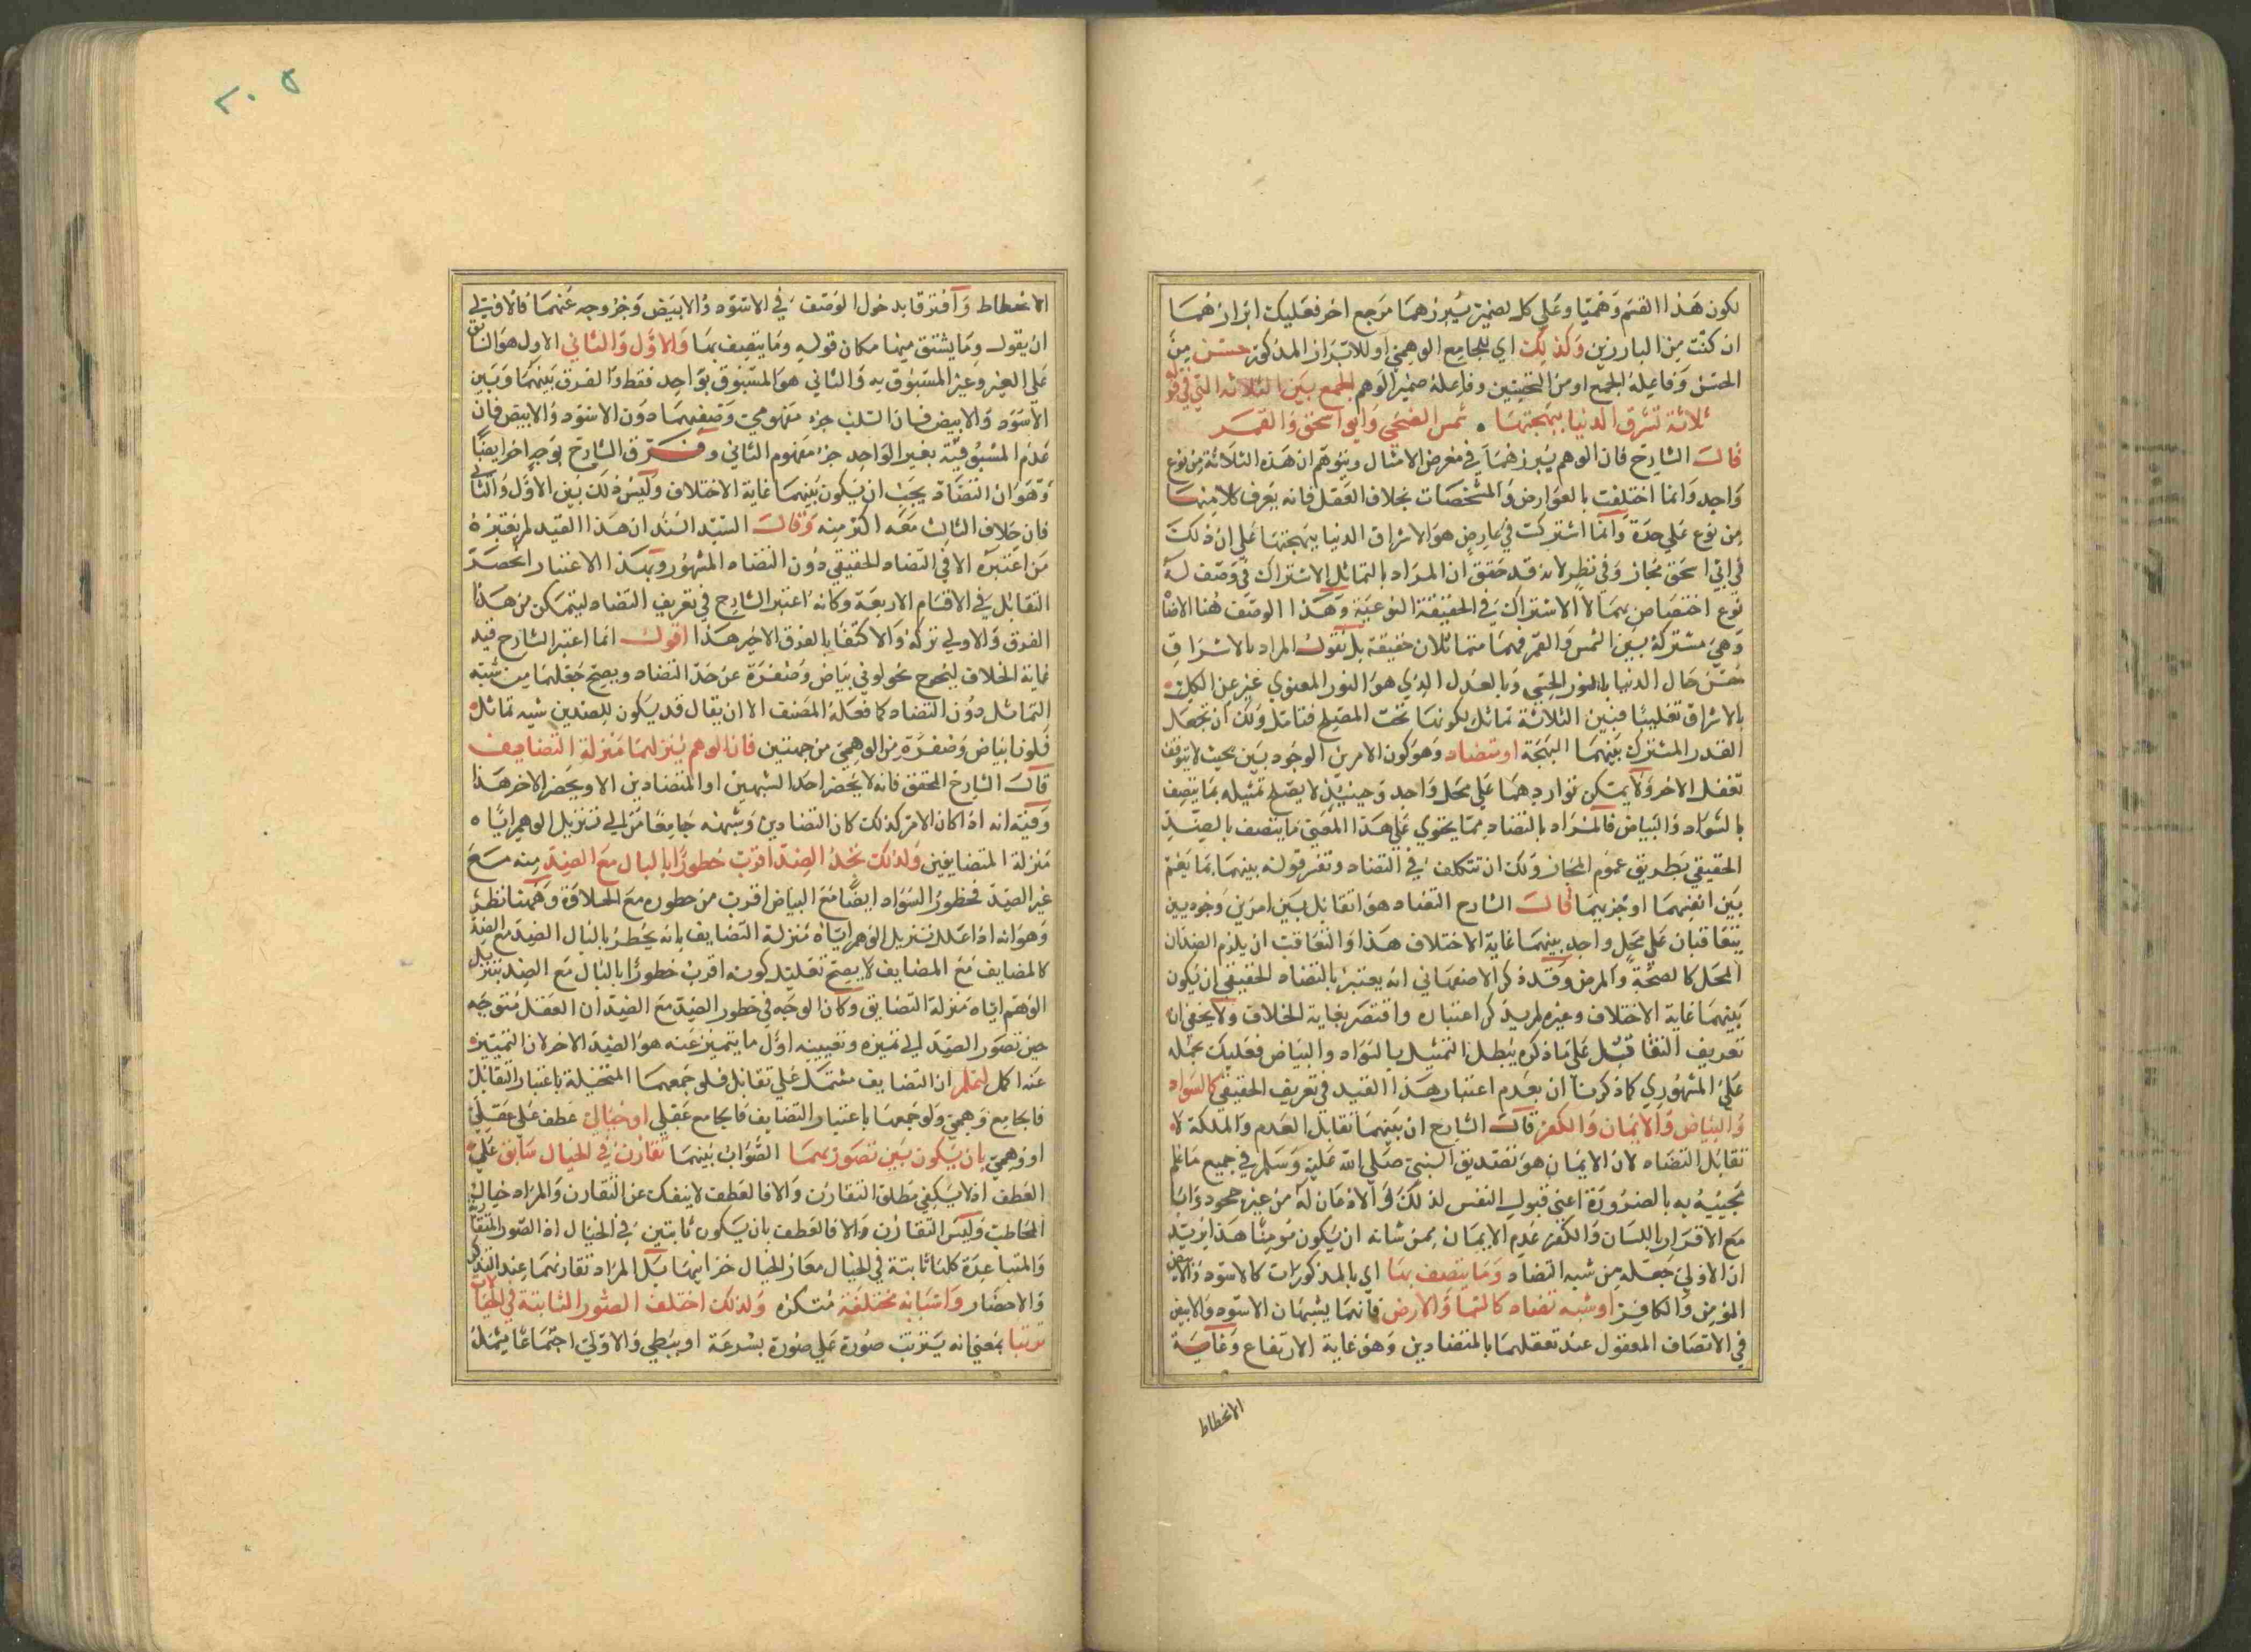 لكون هذا القسم وهميا وعلي كل لضمير يبرزهما مرجع اخر فعليك ابرازهما
ان كنت من البارزين وكذلك اي للجامع الوهمي او للابراز المذكور حسن من
الحسن وفاعله الجمع او من التحسين وفاعله ضمير الوهم الجمع بين الثلاثة التي في قوله
ثلاثة تشرق الدنيا ببهجتها . شمس الضحي وابو اسحق والقمر
قال الشارح فان الوهم يبرزهما في معرض الامثال ويتوهم ان هذه الثلاثة من نوع
واحد وانما اختلفت بالعوارض والمشخصات بخلاف العقل فانه يعرف كلا منها
من نوع علي حدة وانما اشتركت في عارض هو الاشراق الدنيا ببهجتها علي ان ذلك
في ابي اسحق مجاز وفي نظر لانه قد حقق ان المراد بالتماثل الاشتراك في وصف له
نوع اختصاص بهما لا الاشتراك في الحقيقة النوعية وهذا الوصف هنا الاضاة
وهي مشتركة بين الشمس والقمر فهما متماثلان حقيقة بل نقول المراد بالاشراق
حسن حال الدنيا بالنور الحسي وبالعدل الذي هو النور المعنوي غير عن الكل
بالاشراق تغليبا فبين الثلاثة تماثل لكونها تحت المصيلح فتامل ولك ان تجعل
القدر المشترك بينهما البهجة او تضاد وهو كون الامرين الوجوديين بحيث لا يتوقف
تعقل الاخر ولا يمكن تواردهما علي محل واحد وحينئذ لا يصلح تمثيله بما يتصف
بالسواد والبياض فالمراد بالتضاد مما يحتوي علي هذا المعني ما يتصف بالضد
الحقيقي بطريق عموم المجاز ولك ان تتكلف في التضاد وتفسر قوله بينهما بما يعم
بين انفسهما او جزئيهما قال الشارح التضاد هو التقابل بين امرين وجوديين
يتعاقبان علي محل واحد بينهما غاية الاختلاف هذا والتعاقب ان يلزم الضدان
المحل كالصحة والمرض وقد ذكر الاصفهاني انه يعتبر بالتضاد الحقيقي ان يكون
بينهما غاية الاختلاف وغيره لم يذكر اعتباره واقتصر بغاية الخلاف ولا يخفي ان
تعريف التقابل علي ما ذكره يبطل التمثيل بالسواد والبياض فعليك بحمله
علي المشهوري كما ذكرنا ان بعدم اعتبار هذا القيد في تعريف الحقيقي كالسواد
والبياض والايمان والكفر قال الشارح ان بينهما تقابل العدم والملكة لا
تقابل التضاد لان الايمان هو تصديق النبي صلي الله عليه وسلم في جميع ما علم
مجيئه به بالضرورة اعني قبول النفس لذلك والاذعان له من غير جحود واباء
مع الاقرار باللسان والكفر عدم الايمان بمن شانه ان يكون مؤمنا هذا يريد
ان الاولي جعله من شبه التضاد وما يتصف بها اي بالمذكورات كالاسود والابيض
المؤمن والكافر او شبه تضاد كالسما والارض فانهما يشبهان الاسود والابيض
في الاتصاف المعقول عند تعقلهما بالمتضادين وهو غاية الارتفاع وغاية
الانحطاط
٢٠٥
الانحطاط وافترقا بدخول الوصف في الاسود والابيض وخروجه عنهما فالاولي
ان يقول وما يشتق منها مكان قوله وما يتصف بها والاول والثاني الاول هو السابق
علي الغير وغير المسبوق به والثاني هو المسبوق بواحد فقط والفرق بينهما وبين
الاسود والابيض فان السلب جزء مفهومي وصفيهما دون الاسود والابيض فان
عدم المسبوقية بغير الواحد جزء مفهوم الثاني وفرق الشارح بوجه اخر ايضا
وهو ان التضاد يجب ان يكون بينهما غاية الاختلاف وليس ذلك بين الاول والثاني
فان خلاف الثالث معه اكثر منه وقال السيد السند ان هذا القيد لم يعتبره
من اعتبره الا في التضاد الحقيقي دون التضاد المشهور وبهذا الاعتبار انحصر
التقابل في الاقسام الاربعة وكانه اعتبر الشارح في تعريف التضاد ليتمكن من هذا
الفرق والاولي تركه والاكتفا بالفرق الاخير هذا اقول انما اعتبر الشارح قيد
غاية الخلاف ليخرج نحو لوني بياض وصفرة عن حد التضاد ويصح جعلهما من شبه
التماثل دون التضاد كما فعله المصنف الا ان يقال قد يكون للضدين شبه تماثل
فلونا بياض وصفرة من الوهمي من جهتين فان الوهم ينزلهما منزلة التضايف
قال الشارح المحقق فانه لا يحضر احد الشبهين او المتضادين الا ويحضر الاخر هذا
وفيه انه اذا كان الامر كذلك كان التضادين وشبهه جامعا من الي تنزيل الوهم اياه
منزلة المتضايفين ولذلك نجد الضد اقرب خطورا بالبال مع الضد منه مع
غير الضد فخطور السواد ايضا مع البياض اقرب من خطوره مع الحلاوة وههنا نظر
وهو انه اذا علل تنزيل الوهم اياه منزلة التضايف بانه يخطر بالبال الضد مع الضد
كالمضايف مع المضايف لا يصح تعليل كونه اقرب خطورا بالبال مع الضد بتنزيل
الوهم اياه منزلة التضايف وكان الوجه في خطور الضد مع الضد ان العقل متوجه
حين تصور الضد الي تميزه وتعيينه اول ما يتميز عنه هو الضد الاخر لان التمييز
عنه اكمل لتعلم ان التضايف مشتمل علي تقابل فلو جمعهما المتخيلة باعتبار التقابل
فالجامع وهمي ولو جمعهما باعتبار التضايف فالجامع عقلي او خيالي عطف علي عقلي
او وهمي بان يكون بين تصوريهما الصواب بينهما تقارن في الخيال سابق علي
العطف اذ لا يكفي مطلق التقارن والا فالعطف لا ينفك عن التقارن والمراد خيال
المخاطب وليس التقارن والا فالعطف بان يكون ثابتين في الخيال اذ الصور المتقاربة
والمتباعدة كلها ثابتة في الخيال معا والخيال خزانتها بل المراد تقارنهما عند التذكر
والاحضار واسبابه مختلفة متكثرة ولذلك اختلف الصور الثابتة في الخيالات
ترتبا بمعني انه يترتب صورة علي صورة بسرعة او ببطي والاولي اجتماعا يشمل